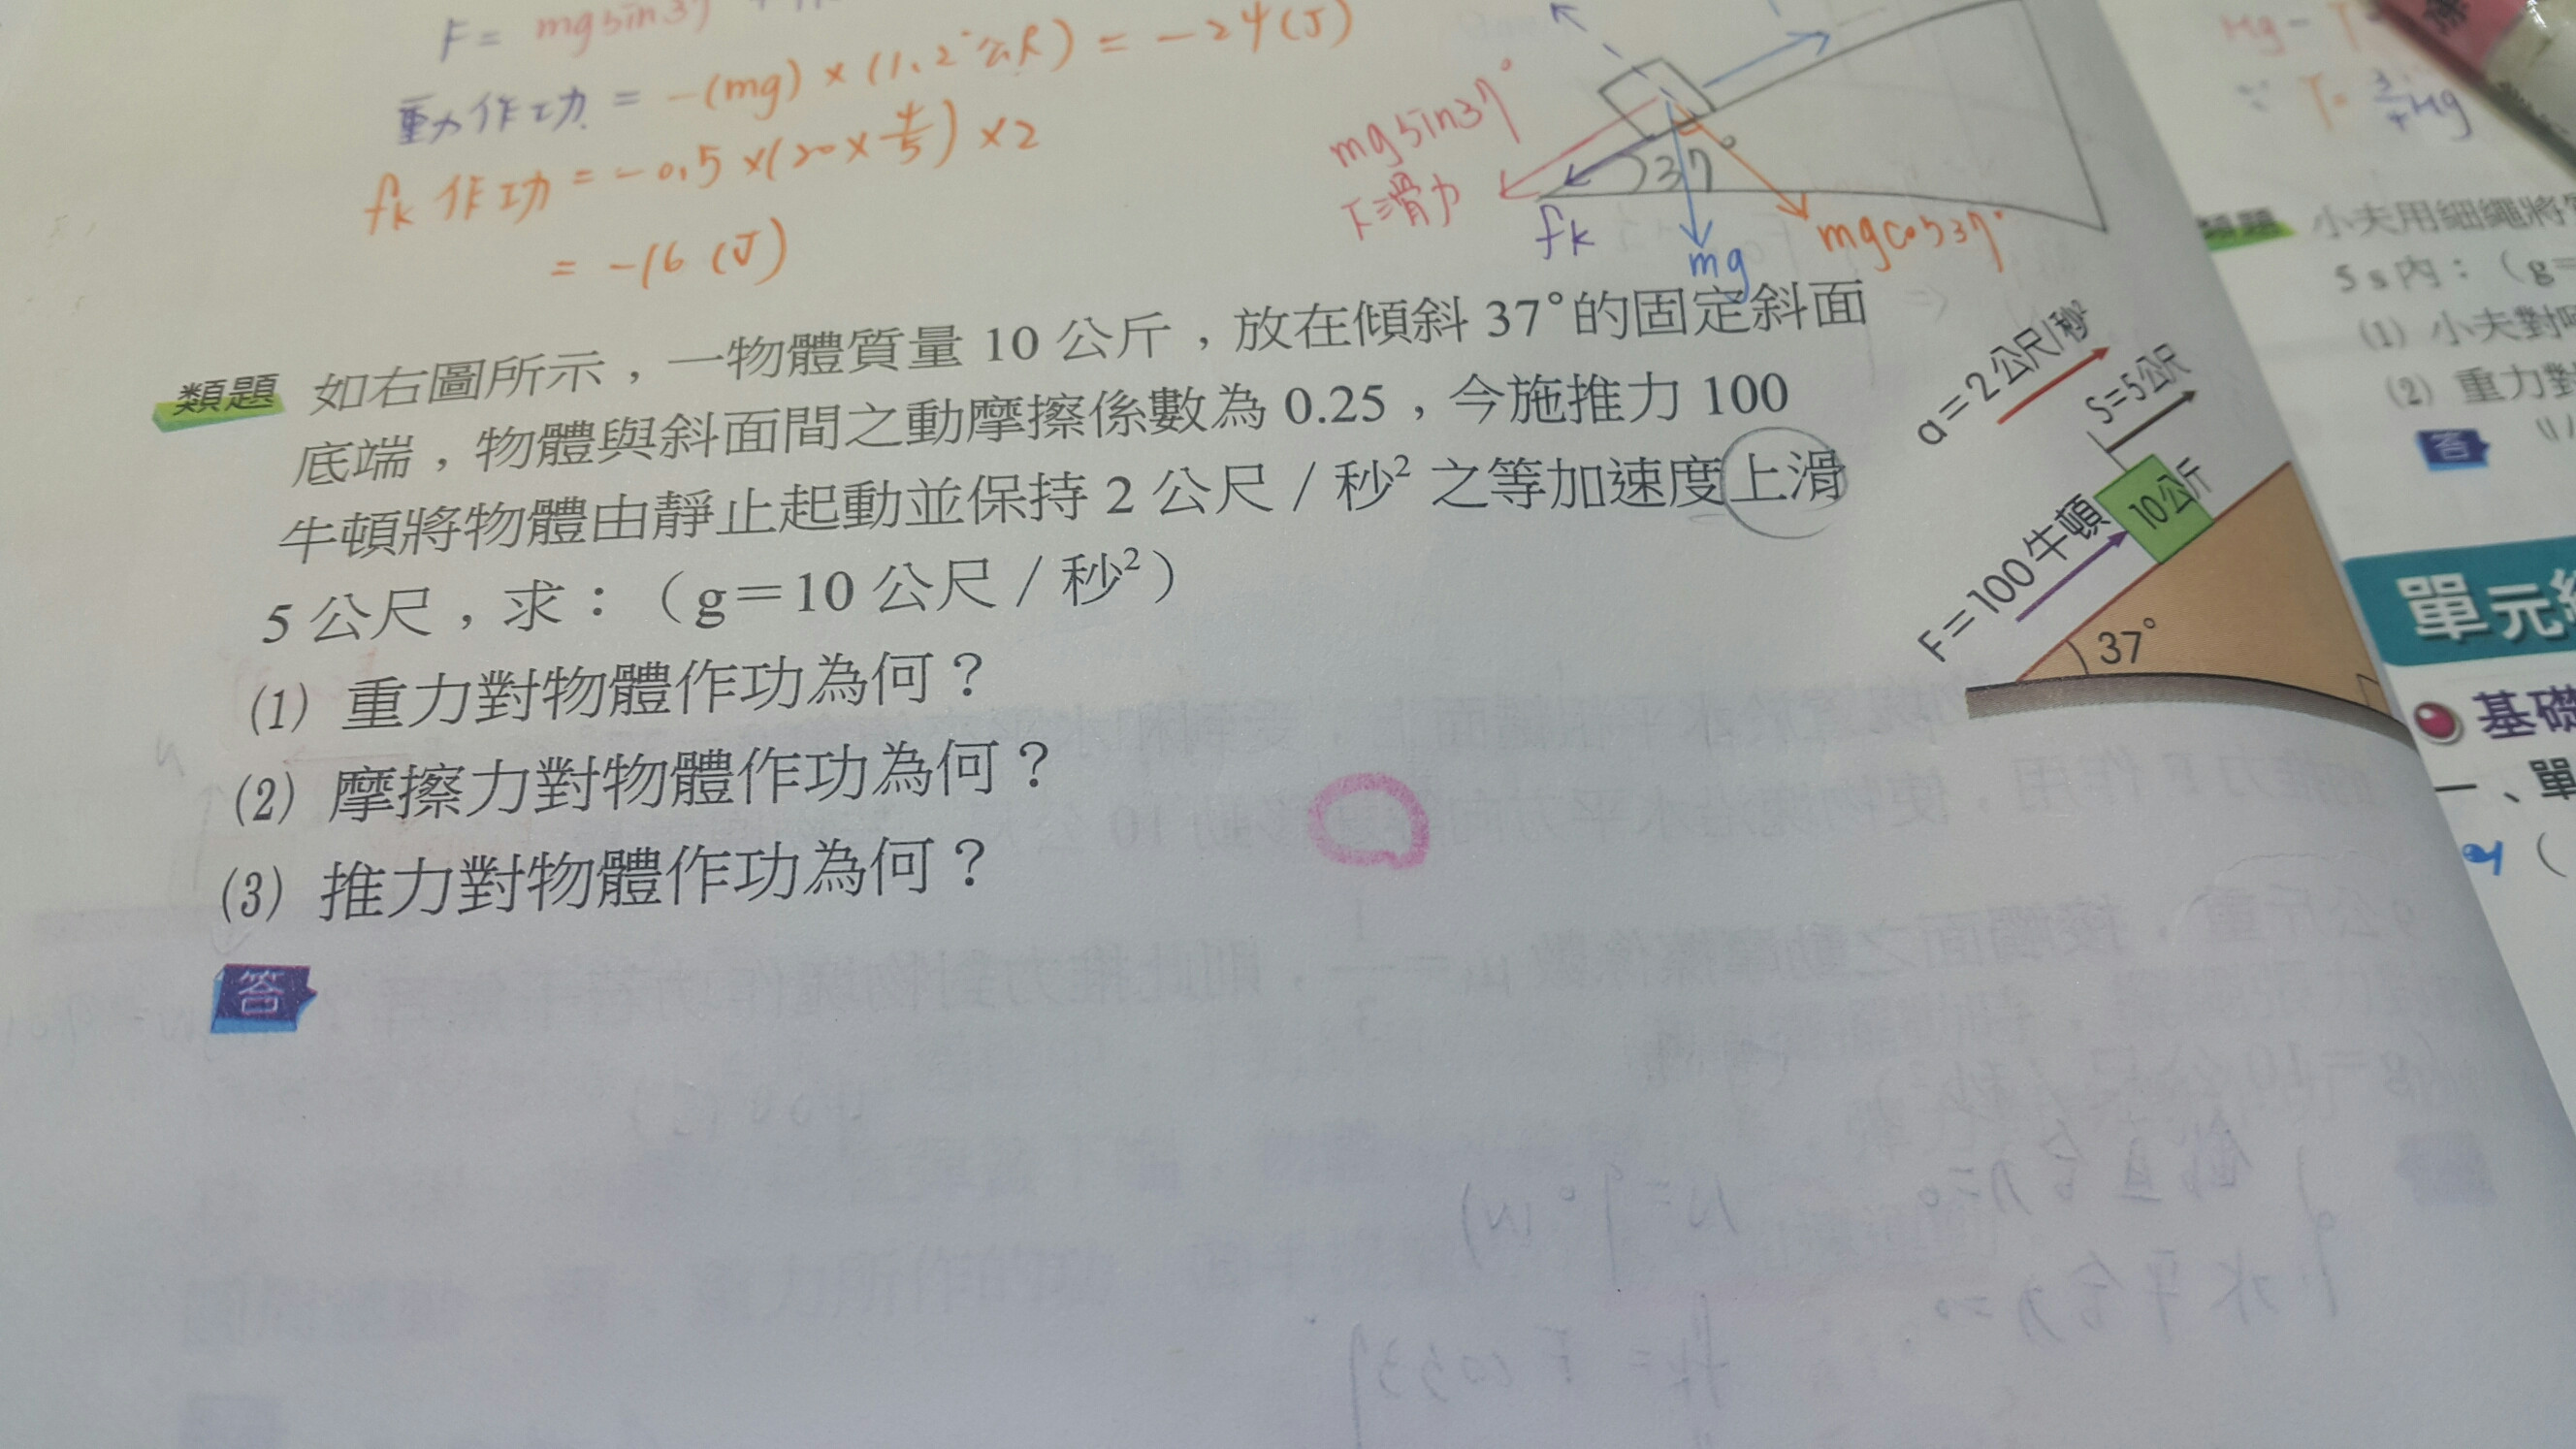 F = mgsin37
重力作功 = -(mg) × (1.2公尺) = -24(J)
fk 作功 = -0.5 ×(20×4/5) ×2
= -16 (J)
mgsin37°
下滑力
fk
37°
mg
mgcos37°
類題 如右圖所示，一物體質量 10 公斤，放在傾斜 37°的固定斜面
底端，物體與斜面間之動摩擦係數為 0.25，今施推力 100
牛頓將物體由靜止起動並保持 2 公尺／秒² 之等加速度上滑
5 公尺，求：（g＝10 公尺／秒²）
(1) 重力對物體作功為何？
(2) 摩擦力對物體作功為何？
(3) 推力對物體作功為何？
答
a＝2公尺/秒²
S＝5公尺
10公斤
F＝100牛頓
37°
Mg - T
T= 3/4Mg
類題 小夫用細繩將
5 s內：（g＝
(1) 小夫對
(2) 重力對
答
單元
基礎
一、單
（